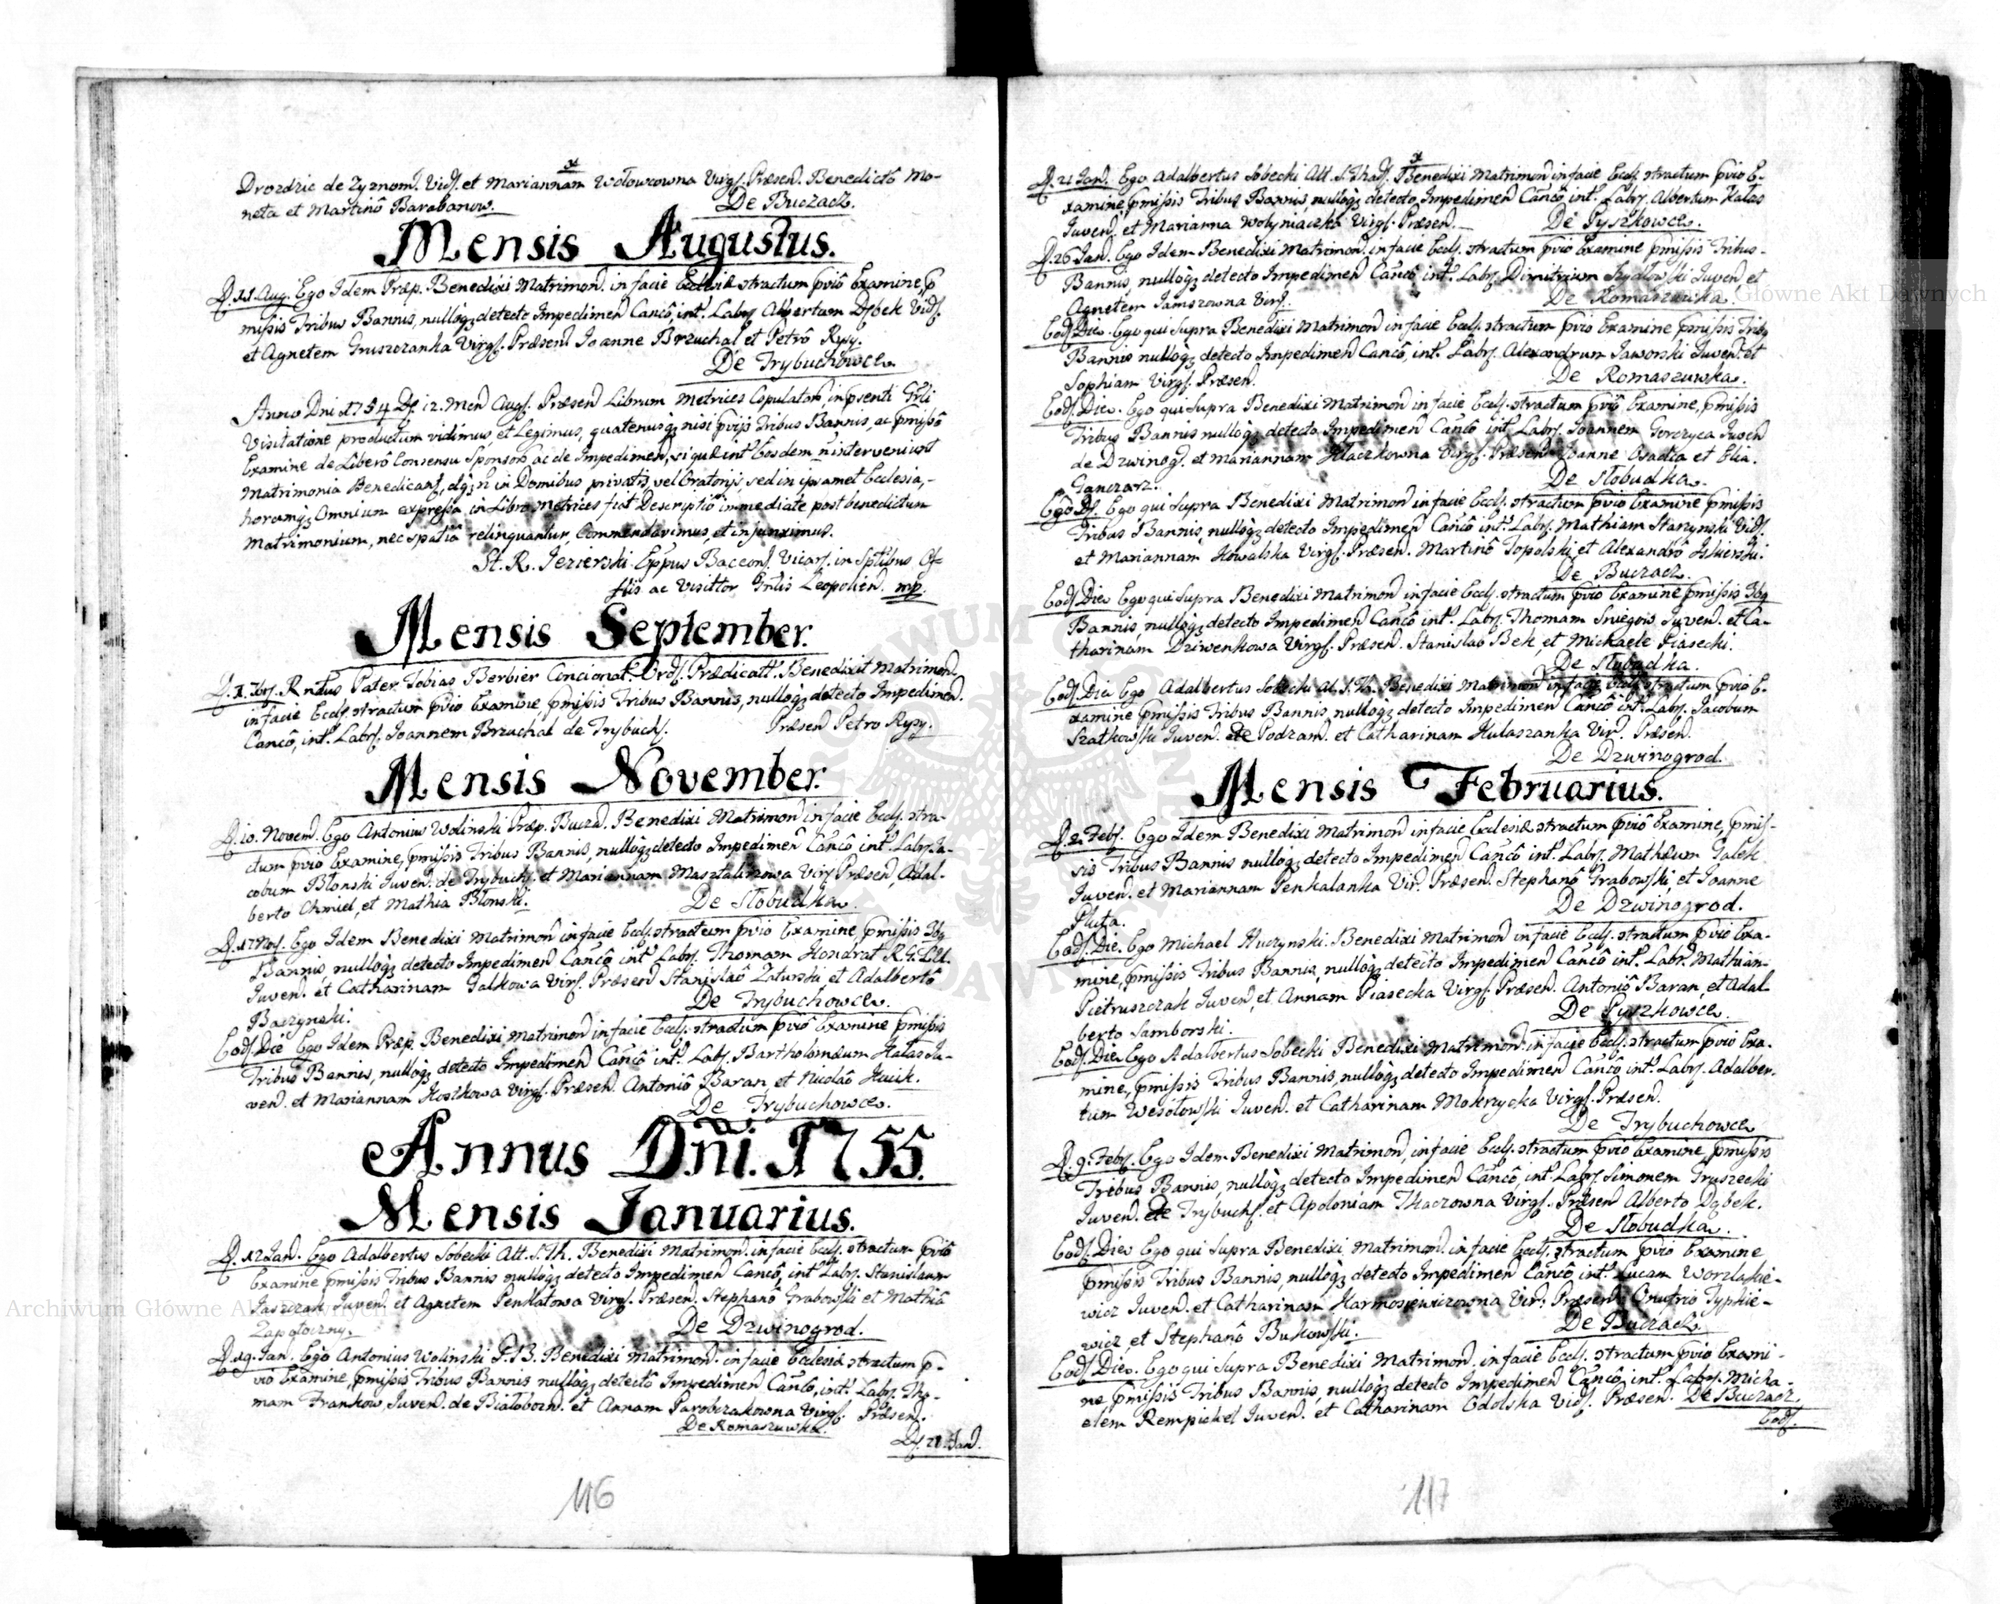 Drozdzic de Zyznom. Vid. et Mariannam Wołowcowna Virg. Præsen. Benedictô Mo-
neta et Martinô Barabanow.
De Buczacz.
Mensis Augustus.
D. 11. Aug. Ego Idem Præp. Benedixi Matrimon. in facie Ecclesiæ stractum pviô Examine, p
missis Tribus Bannis, nulloq; detecto Impedimen Canco, int. Labr. Albertum Dębek Vid.
et Agnetem Gruszczanka Virg. Præsen Joanne Brzuchal et Petrô Rysy.
De Trybuchowce.
Anno Dni 1754 D. 12. Men Aug. Præsen Librum Metrices Copulator, in psenti Grli
Visitatione productum vidimus et Legimus, quatenus q; nisi pvijs Tribus Bannis, ac pmissô
Examine de Liberô Consensu Sponsor ac de Impedimen, si quæ int. Eosdem n intervenirent
Matrimonia Benedicant, dq; n in Domibus privatis, vel Oratorijs, sed in ipsamet Ecclesia,
horumq; Omnium expressa in Libro Metrices fiat Descriptiô immediate post benedictum
Matrimonium, nec spatia relinquantur, Commendavimus, et injunximus.
St. R. Jezierski Eppus Baccon. Vicar. in Sptlbus Of-
flis ac Visittor Grlis Leopolien. mp.
Mensis September.
D. 1. 7br. R ndus Pater Tobias Berbier Concionat. Ord. Prædicatt. Benedixit Matrimon.
in facie Eccl. stractum pvio Examine, pmissis Tribus Bannis, nulloq; detecto Impedimen.
Canco, int. Labr. Joannem Brzuchal de Trybuch.
Præsen Petro Rysy.
Mensis November.
D. 10. Novem. Ego Antonius Wolinski Præp. Bucza. Benedixi Matrimon in facie Eccl. stra-
ctum pvio Examine, pmissis Tribus Bannis, nulloq; detecto Impedimen Canco int. Labr. Ja-
cobum Błonski Juven. de Trybuch. et Mariannam Masztalirzowa Virg. Præsen, Adal-
berto Chmiel, et Mathia Blonski.
De Słobudka.
D. 17 Nov. Ego Idem Benedixi Matrimon in facie Eccl. stractum pvio Examine, pmissis 3bq
Bannis nulloq; detecto Impedimen Canco int. Labr. Thomam Kondrat
Juven. et Catharinam Galkowa Virg. Præsen Stanislaô Zaturski, et Adalbertô
Baczynski.
De Trybuchowce.
Eod. Die Ego Idem Præp. Benedixi Matrimon in facie Eccl. stractum pviô Examine pmissis
Tribus Bannis, nulloq; detecto Impedimen Canco int. Labr. Bartholomæum Hałas Ju-
ven. et Mariannam Koszkowa Virg. Præsen. Antoniô Baran, et Nicolaô Huik.
De Trybuchowce.
Annus Dni. 1755.
Mensis Januarius.
D. 12 Jan. Ego Adalbertus Sobecki Alt. S. Th. Benedixi Matrimon. in facie Eccl. stractum pviô
Examine pmissis Tribus Bannis nulloq; detecto Impedimen Canco, int. Labr. Stanislaum
Paszczak Juven. et Agnetem Penkatowa Virg. Præsen. Stephanô Grabowski et Mathiâ
Zapotoczny.
De Dzwinogrod.
D. 19. Jan. Ego Antonius Wolinski P. P. B. Benedixi Matrimon. in facie Ecclesiæ stractum p-
vio Examine, pmissis Tribus Bannis nulloq; detectô Impedimen Canco, int. Labr. Tho-
mam Frankow, Juven. de Białobozn. et Annam Parobczakowna Virg. Præsen.
De Romaszuwka.
D. 21 Jan.
116
D. 21 Jan. Ego Adalbertus Sobecki Alt. S. Thad. Benedixi Matrimon in facie Eccl. stractum pvio E-
xamine, pmissis Tribus Bannis, nulloq; detecto Impedimen Canco, int. Labr. Albertum Hałas
Juven. et Marianna Wołyniaczka Virg. Præsen.
De Pyszkowce.
D. 26 Jan. Ego Idem Benedixi Matrimon. in facie Eccl. stractum pviô Examine pmissis Tribus
Bannis, nulloq; detecto Impedimen Canco int. Labr. Dimitrium Szydłowski Juven, et
Agnetem Jamszowna Virg.
De Romaszuwka.
Eod. Die. Ego qui supra Benedixi Matrimon in facie Eccl. stractum pvio Examine, pmissis Trib9
Bannis nulloq; detecto Impedimen Canco, int. Labr. Alexandrum Jaworski Juven. et
Sophiam Virg. Præsen.
De Romaszuwka.
Eod. Die. Ego qui supra Benedixi Matrimon in facie Eccl. stractum pviô Examine, pmissis
Tribus Bannis nulloq; detecto Impedimen Canco int Labr. Joannem Gorczyca Juven
de Dzwinog. et Mariannam Kłaczkowna Virg. Præsen Joanne Osadca et Elia.
Ganczarz.
De Słobudka.
Ego D. Ego qui supra Benedixi Matrimon in facie Eccl. stractum pvio Examine pmissis
Tribus Bannis, nulloq; detecto Impedimen Canco int. Labr. Mathiam Starzynski Vid.
et Mariannam Kowalska Virg. Præsen. Martinô Topolski et Alexandrô Iskierski.
De Buczacz.
Eod. Die Ego qui supra Benedixi Matrimon in facie Eccl. stractum pvio Examine pmissis 3bq
Bannis, nulloq; detecto Impedimen Canco int. Labr. Thomam Sniegois, Juven. et Ca-
tharinam Dziwenkowa Virg. Præsen. Stanislao Bek, et Michaele Piasecki.
De Słobudka.
Eod. Die Ego Adalbertus Sobecki Al. S. Th. Benedixi Matrimon in facie Eccl. stractum pvio E-
xamine pmissis Tribus Bannis, nulloq; detecto Impedimen Canco int. Labr. Jacobum
Szatkowski Juven. de Podzam. et Catharinam Hulaszanka Vir. Præsen.
De Dzwinogrod.
Mensis Februarius.
D. 2. Feb. Ego Idem Benedixi Matrimon in facie Eclesiæ stractum pviô Examine, pmis-
sis Tribus Bannis nulloq; detecto Impedimen Canco int. Labr. Mathæum Galek
Juven. et Mariannam Penkalanka Vir. Præsen. Stephanô Grabowski, et Joanne
Pluta.
De Dzwinogrod.
Eod. Die. Ego Michael Kuczynski. Benedixi Matrimon in facie Eccl. stractum pvio Exa-
mine, pmissis Tribus Bannis, nulloq; detecto Impedimen Canco int. Labr. Mathian-
Pietruszczak Juven, et Annam Piasecka Virg. Præsen. Antoniô Baran, et Adal
berto Samborski.
De Pyszkowce.
Eod. Die Ego Adalbertus Sobecki Benedixi Matrimon. in facie Eccl. stractum pvio Exa-
mine, pmissis Tribus Bannis, nulloq; detecto Impedimen Canco int. Labr. Adalber-
tum Wesołowski Juven. et Catharinam Mokrzycka Virg. Præsen.
De Trybuchowce
D. 9. Feb. Ego Idem Benedixi Matrimon, in facie Eccl. stractum pvio Examine, pmissis
Tribus Bannis, nulloq; detecto Impedimen Canco, int. Labr. Simonem Gruszecki
Juven. de Trybuch. et Apoloniam Tkaczowna Virg. Præsen Alberto Dąbek.
De Słobudka.
Eod. Die Ego qui supra Benedixi Matrimon. in facie Eccl. stractum pvio Examine
pmissis Tribus Bannis, nulloq; detecto Impedimen Canco, int. Lucam Worzlakie-
wicz Juven. et Catharinam Harmosiewiczowna Vir. Præsen. Dmitrio Typkie-
wicz, et Stephanô Bukowski.
De Buczacz.
Eod. Die. Ego qui supra Benedixi Matrimon. in facie Eccl. stractum pvio Exami-
ne, pmissis Tribus Bannis, nulloq; detecto Impedimen Canco, int. Labr. Micha-
elem Rempickel Juven. et Catharinam Edolska Vid. Præsen. De Buczacz.
Eod.
117
Archiwum Główne Akt Dawnych